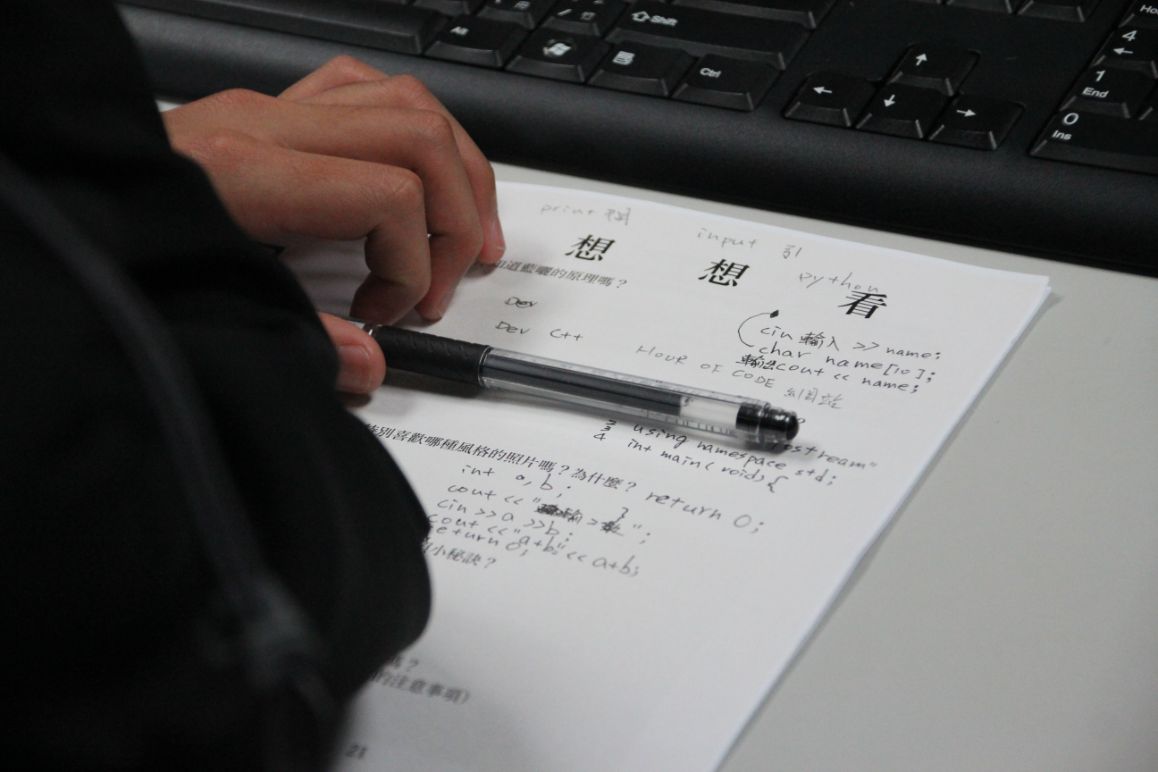 Shift
Alt
Ctrl
4
1
End
0
Ins
print
input 引
python
想 想 看
知道藍曬的原理嗎？
Dev
Dev C++
cin 輸入 >> name;
char name[10];
cout << name;
HOUR OF CODE 網站
3 using namespace std;
4 int main(void){
特別喜歡哪種風格的照片嗎？為什麼？
return 0;
}
int a, b;
cout << " ";
cin >> a >> b;
cout << "a+b=" << a+b;
return 0;
小秘訣？
嗎？
的注意事項）
21